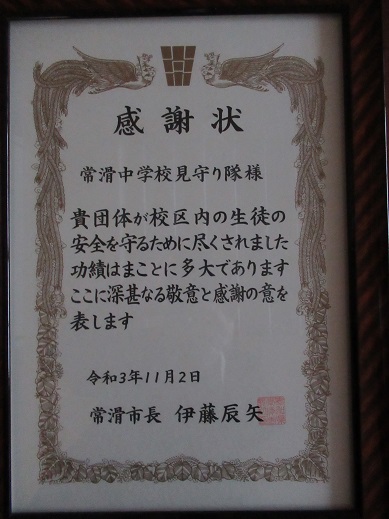 感謝状
常滑中学校見守り隊様
貴団体が校区内の生徒の
安全を守るために尽くされました
功績はまことに多大であります
ここに深甚なる敬意と感謝の意を
表します
令和3年11月2日
常滑市長 伊藤辰矢